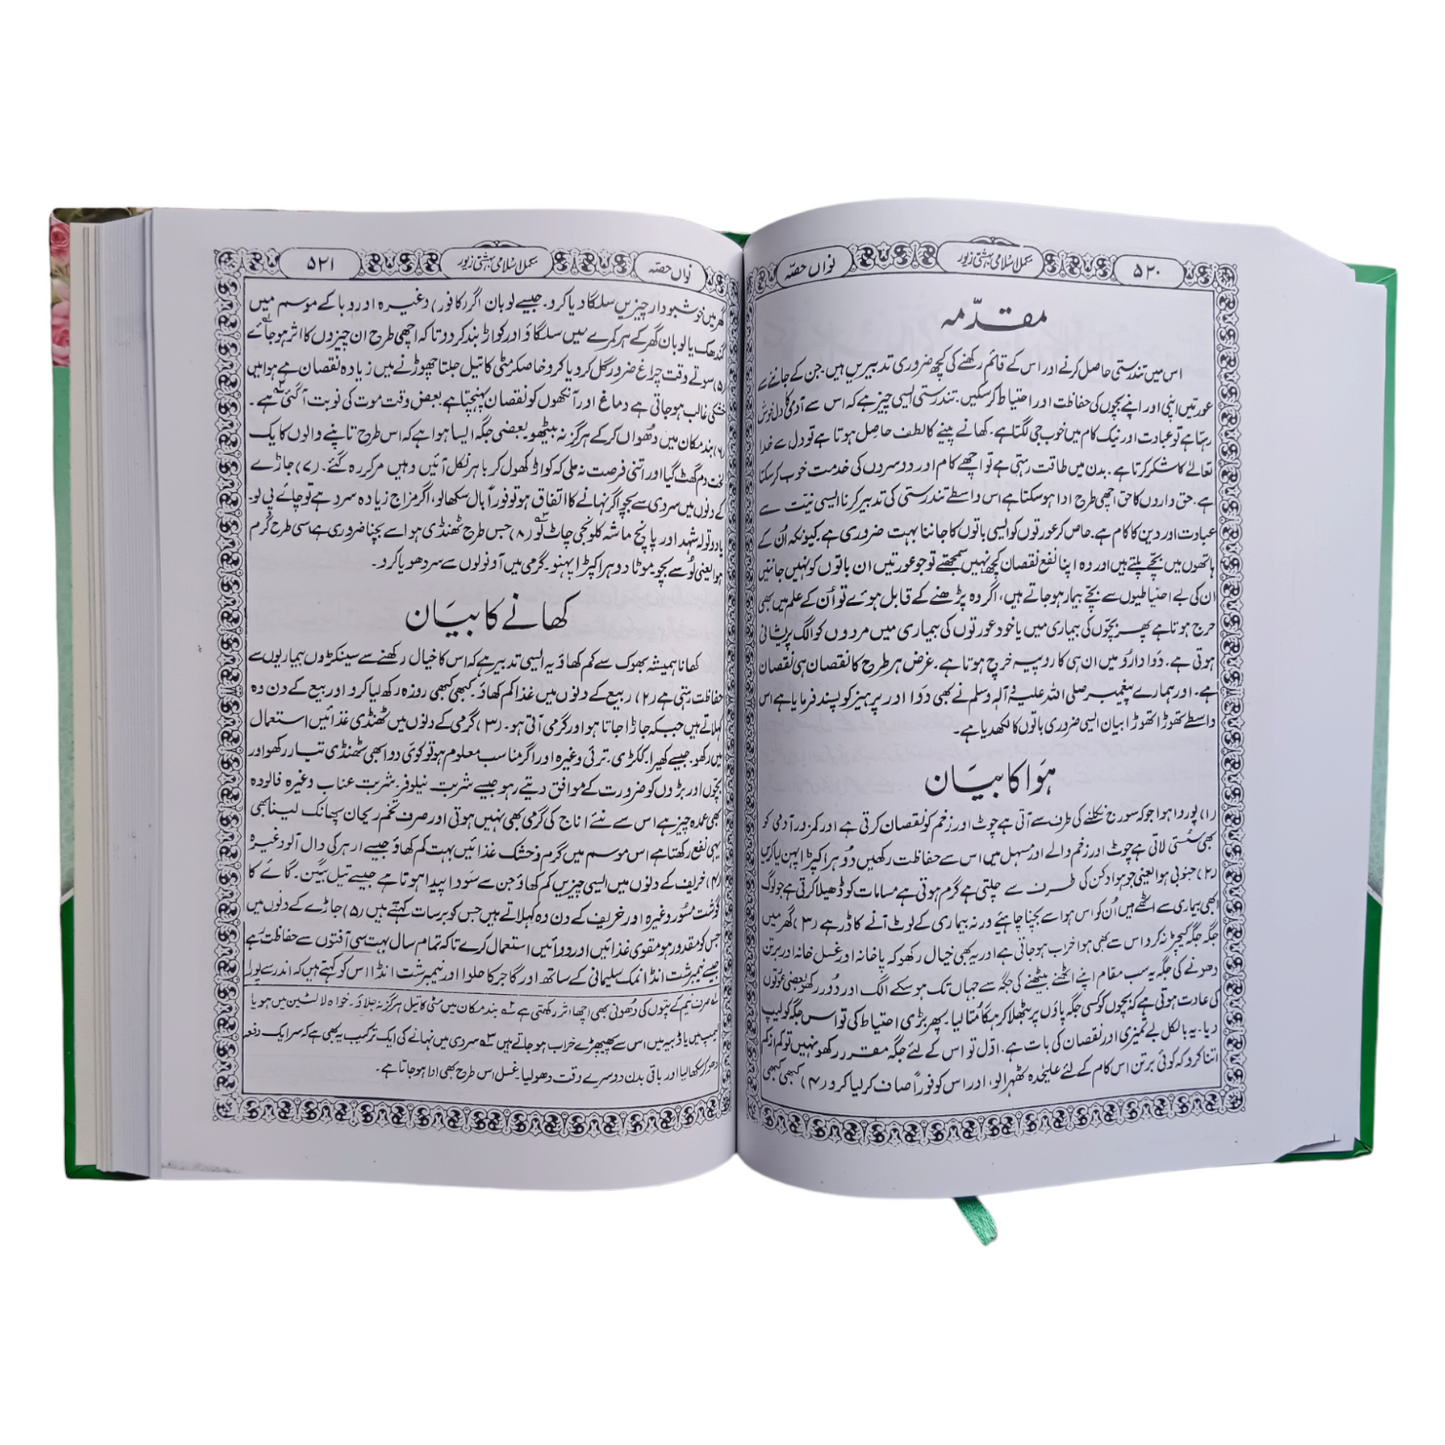 ۵۲۰ مکمل اسلامی بہشتی زیور نواں حصّہ
مقدّمہ
اس میں تندرستی حاصل کرنے اور اس کے قائم رکھنے کی کچھ ضروری تدبیریں ہیں۔ جن کے جاننے سے
عورتیں اپنی اور اپنے بچوں کی حفاظت اور احتیاط کر سکیں۔ تندرستی ایسی چیز ہے کہ اس سے آدمی کا دل خوش
رہتا ہے تو عبادت اور نیک کام میں خوب جی لگتا ہے۔ کھانے پینے کا لطف حاصل ہوتا ہے تو دل سے خدا
تعالےٰ کا شکر کرتا ہے۔ بدن میں طاقت رہتی ہے تو اچھے کام اور دوسروں کی خدمت خوب کر سکتا
ہے۔ حق داروں کا حق اچھی طرح ادا ہو سکتا ہے اس واسطے تندرستی کی تدبیر کرنا ایسی نیت سے
عبادت اور دین کا کام ہے۔ خاص کر عورتوں کو ایسی باتوں کا جاننا بہت ضروری ہے۔ کیونکہ اُن کے
ہاتھوں میں بچّے پلتے ہیں اور وہ اپنا نفع نقصان کچھ نہیں سمجھتے تو جو عورتیں ان باتوں کو نہیں جانتیں
ان کی بے احتیاطیوں سے بچّے بیمار ہو جاتے ہیں، اگر وہ پڑھنے کے قابل ہوئے تو اُن کے علم میں بھی
حرج ہوتا ہے پھر بچّوں کی بیماری میں یا خود عورتوں کی بیماری میں مردوں کو الگ پریشانی
ہوتی ہے۔ دَوا دارُو میں ان ہی کا روپیہ خرچ ہوتا ہے۔ غرض ہر طرح کا نقصان ہی نقصان
ہے۔ اور ہمارے پیغمبر صلی اللہ علیہ و آلہ وسلم نے بھی دَوا اور پرہیز کو پسند فرمایا ہے اس
واسطے تھوڑا تھوڑا بیان ایسی ضروری باتوں کا لکھ دیا ہے۔
ہَوا کا بیَان
(۱) پوروا ہوا جو کہ سورج نکلنے کی طرف سے آتی ہے چوٹ اور زخم کو نقصان کرتی ہے اور کمزور آدمی کو
بھی سُستی لاتی ہے چوٹ اور زخم والے اور مسہل میں اس سے حفاظت رکھیں دُوہرا کپڑا پہن لیا کریں
(۲) جنوبی ہوا یعنی جو ہوا دکن کی طرف سے چلتی ہے گرم ہوتی ہے مسامات کو ڈھیلا کرتی ہے جو لوگ
ابھی بیماری سے اٹھے ہیں اُن کو اس ہوا سے بچنا چاہیئے ورنہ بیماری کے لوٹ آنے کا ڈر ہے (۳) گھر میں
جگہ جگہ کیچڑ نہ کرو اس سے بھی ہوا خراب ہو جاتی ہے اور یہ بھی خیال رکھو کہ پاخانہ اور غسل خانہ اور برتن
دھونے کی جگہ یہ سب مقام اپنے اٹھنے بیٹھنے کی جگہ سے جہاں تک ہو سکے الگ اور دُور رکھو بعضی عورتوں
کی عادت ہوتی ہے کہ بچّوں کو کسی جگہ پاؤں پر بٹھلا کر ہگا مُتا لیا۔ پھر بڑی احتیاط کی تو اس جگہ کو لیپ
دیا۔ یہ بالکل بے تمیزی اور نقصان کی بات ہے۔ اوّل تو اس کے لئے جگہ مقرر رکھو نہیں تو کم از کم
اتنا کرو کہ کوئی برتن اس کام کے لئے علیٰحدہ ٹھہرا لو، اور اس کو فوراً صاف کر لیا کرو (۴) کبھی کبھی
۵۲۱ مکمل اسلامی بہشتی زیور نواں حصّہ
گھر میں خوشبودار چیزیں سلگا دیا کرو۔ جیسے لوبان اگر کافور) وغیرہ اور وبا کے موسم میں
گندھک یا لوبان گھر کے ہر کمرے میں سلگاؤ اور کواڑ بند کر دو تاکہ اچھی طرح ان چیزوں کا اثر ہو جائے
(۵) سوتے وقت چراغ ضرور گل کر دیا کرو خاصکر مٹی کا تیل جلتا چھوڑنے میں زیادہ نقصان ہے ہوا میں
خشکی غالب ہو جاتی ہے دماغ اور آنکھوں کو نقصان پہنچتا ہے بعض وقت موت کی نوبت آ گئی ہے۔
(۶) بند مکان میں دھُواں کر کے ہرگز نہ بیٹھو بعضی جگہ ایسا ہوا ہے کہ اس طرح تاپنے والوں کا یک
لخت دم گھٹ گیا اور اتنی فرصت نہ ملی کہ کواڑ کھول کر باہر نکل آئیں وہیں مر کر رہ گئے۔ (۷) جاڑے
کے دنوں میں سردی سے بچو اگر نہانے کا اتفاق ہو تو فوراً بال سکھا لو، اگر مزاج زیادہ سرد ہے تو چائے پی لو۔
یا دو تولہ شہد اور پانچ ماشہ کلونجی چاٹ لو (۸) جس طرح ٹھنڈی ہوا سے بچنا ضروری ہے اسی طرح گرم
ہوا یعنی لُو سے بچو موٹا دوہرا کپڑا پہنو۔ گرمی میں آونولوں سے سر دھویا کرو۔
کھانے کا بیَان
کھانا ہمیشہ بھوک سے کم کھاؤ یہ ایسی تدبیر ہے کہ اس کا خیال رکھنے سے سینکڑوں بیماریوں سے
حفاظت رہتی ہے (۲) ربیع کے دنوں میں غذا کم کھاؤ۔ کبھی کبھی روزہ رکھ لیا کرو اور ربیع کے دن وہ
کہلاتے ہیں جبکہ جاڑا جاتا ہو اور گرمی آتی ہو۔ (۳) گرمی کے دنوں میں ٹھنڈی غذائیں استعمال
میں رکھو۔ جیسے کھیرا۔ ککڑی۔ ترئی وغیرہ اور اگر مناسب معلوم ہو تو کوئی دوا بھی ٹھنڈی تیار رکھو اور
بچّوں اور بڑوں کو ضرورت کے موافق دیتے رہو جیسے شربت نیلوفر۔ شربت عناب وغیرہ فالودہ
بھی عمدہ چیز ہے اس سے نئے اناج کی گرمی بھی نہیں ہوتی اور صرف تخم ریحان پھانک لینا بھی
یہی نفع رکھتا ہے اس موسم میں گرم و خشک غذائیں بہت کم کھاؤ جیسے ارہر کی دال آلو وغیرہ
(۴) خریف کے دنوں میں ایسی چیزیں کم کھاؤ جن سے سَودا پیدا ہوتا ہے جیسے تیل بیَگن۔ گائے کا
گوشت مسُور وغیرہ اور خریف کے دن وہ کہلاتے ہیں جس کو برسات کہتے ہیں (۵) جاڑے کے دنوں میں
جس کو مقدور ہو مقوی غذائیں اور دوائیں استعمال کرے تاکہ تمام سال بہت سی آفتوں سے حفاظت رہے
جیسے نیمبرشت انڈا نمک سلیمانی کے ساتھ اور گاجر کا حلوا اور نیمبرشت انڈا اس کو کہتے ہیں کہ اندر سے پورا
۱؎ صرف نیم کے پتّوں کی دھونی بھی اچھا اثر رکھتی ہے ۲؎ بند مکان میں مٹی کا تیل ہرگز نہ جلاؤ۔ خواہ لالٹین میں ہو یا
لیمپ میں یا ڈبیہ میں اس سے پھیپھڑے خراب ہو جاتے ہیں ۳؎ سردی میں نہانے کی ایک ترکیب یہ بھی ہے کہ سر ایک دفعہ
دھو کر سکھا لیا اور باقی بدن دوسرے وقت دھو لیا غسل اس طرح بھی ادا ہو جاتا ہے۔